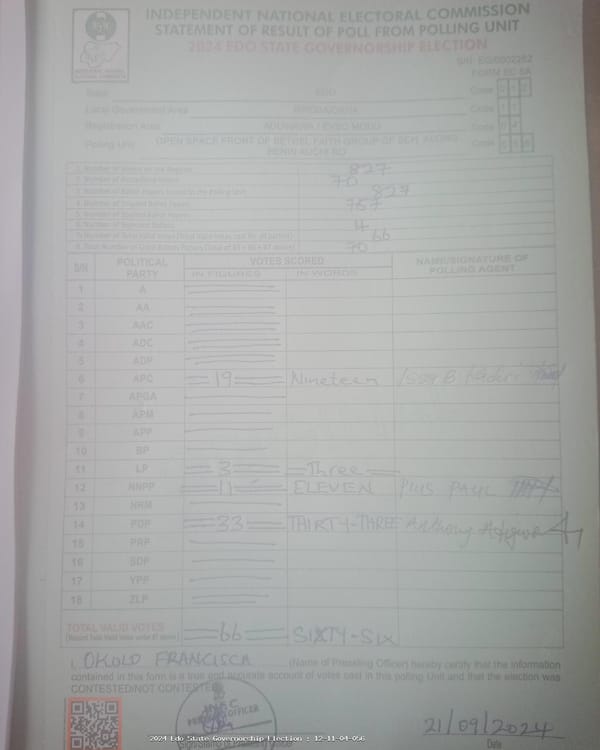 INDEPENDENT NATIONAL ELECTORAL COMMISSION
STATEMENT OF RESULT OF POLL FROM POLLING UNIT
2024 EDO STATE GOVERNORSHIP ELECTION
FORM EC 8A
State EDO Code
Local Government Area Code
Registration Area Code
Polling Unit OPEN SPACE FRONT OF BETHEL FAITH GROUP OF SCH. ALONG BENIN AUCHI RD Code
1. Number of Voters on the Register 827
2. Number of Accredited Voters 70
3. Number of Ballot Papers Issued to the Polling Unit 827
4. Number of Unused Ballot Papers 757
5. Number of Spoiled Ballot Papers
6. Number of Rejected Ballots 4
7. Number of Total Valid Votes (Total Valid Votes cast for all parties) 66
8. Total Number of Used Ballot Papers (Total of #5 + #6 + #7 above) 70
S/N POLITICAL PARTY VOTES SCORED NAME/SIGNATURE OF POLLING AGENT
IN FIGURES IN WORDS
1 A
2 AA
3 AAC
4 ADC
5 ADP
6 APC 19 Nineteen
7 APGA
8 APM
9 APP
10 BP
11 LP 3 Three
12 NNPP 11 ELEVEN PIUS PAUL
13 NRM
14 PDP 33 THIRTY-THREE Anthony
15 PRP
16 SDP
17 YPP
18 ZLP
TOTAL VALID VOTES 66 SIXTY-SIX
I, OKOLO FRANCISCA (Name of Presiding Officer) hereby certify that the information
contained in this form is a true and accurate account of votes cast in this polling Unit and that the election was
CONTESTED/NOT CONTESTED
21/09/2024
Date
2024 Edo State Governorship Election : 12-11-04-056